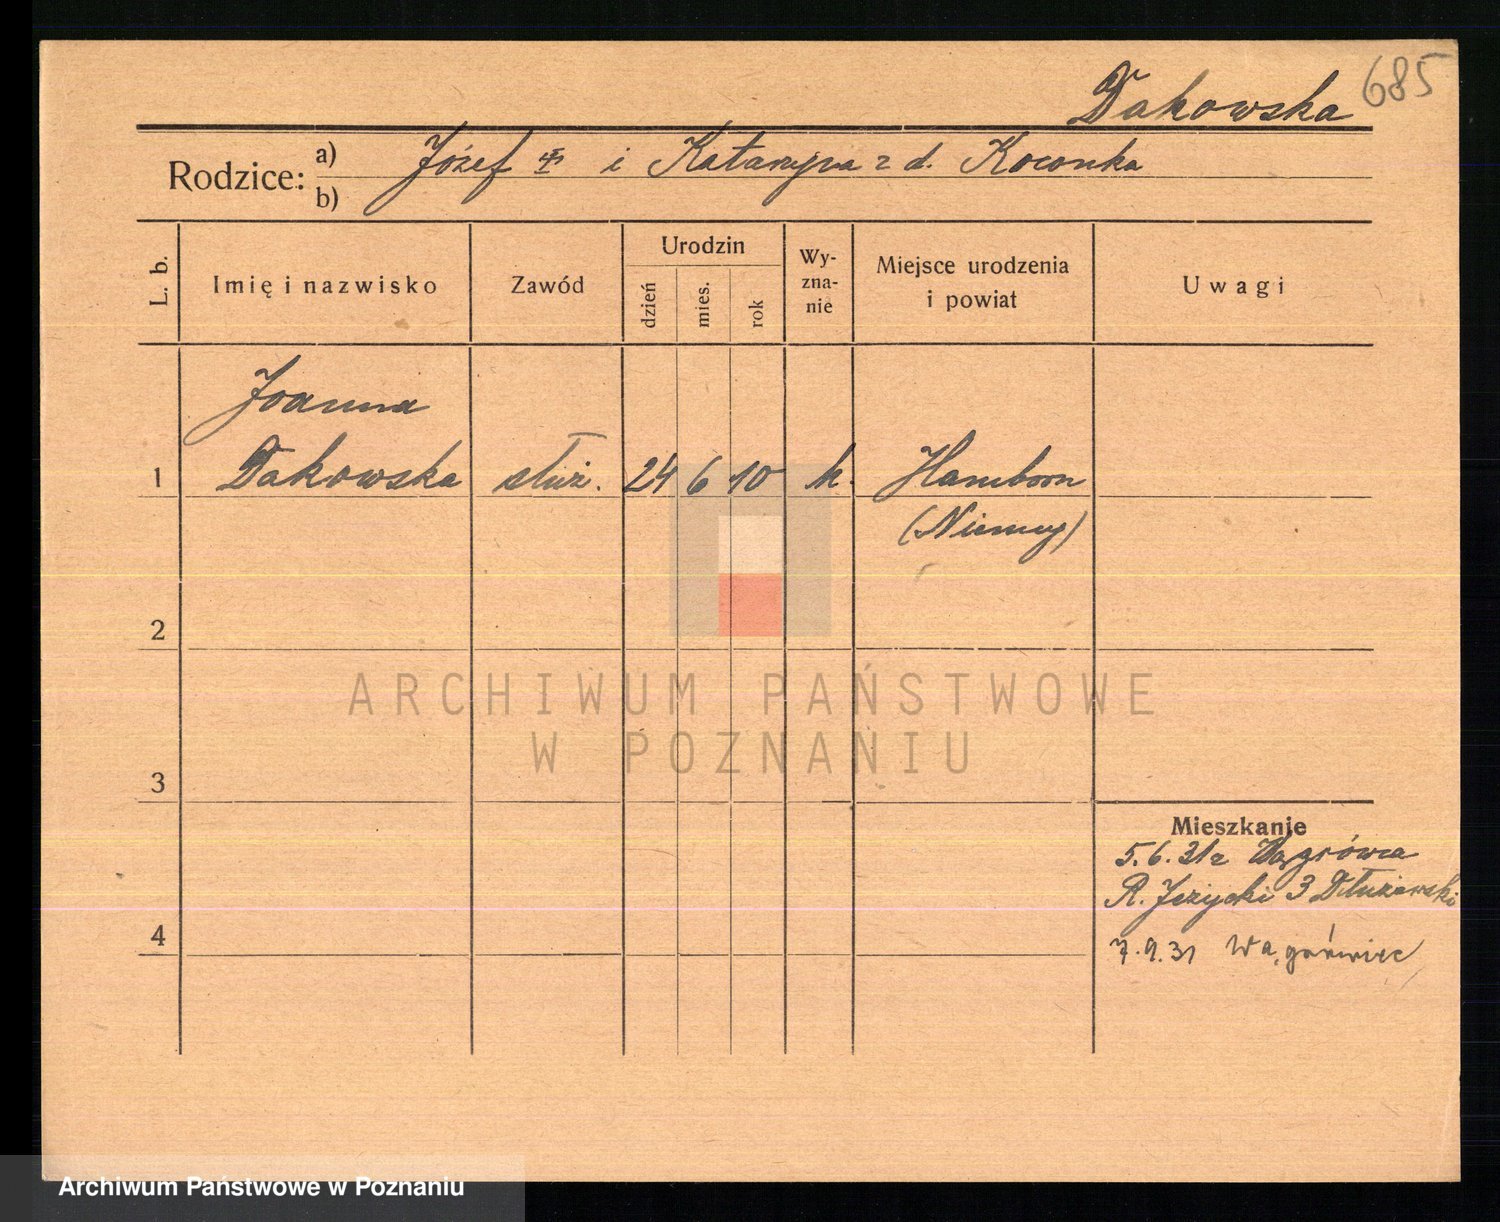 Dakowska 685
Rodzice: a) Józef i Katarzyna z d. Koconka
b)
L. b. Imię i nazwisko Zawód Urodzin dzień mies. rok Wyznanie Miejsce urodzenia i powiat Uwagi
Joanna
1 Dakowska służ. 24 6 10 k. Hamborn
(Niemcy)
2
3
4
Mieszkanie
5.6.31 z Wągrówca
R. Jeżycki 3 Dłużewski
7.9.31 Wągrówiec
ARCHIWUM PAŃSTWOWE
W POZNANIU
Archiwum Państwowe w Poznaniu